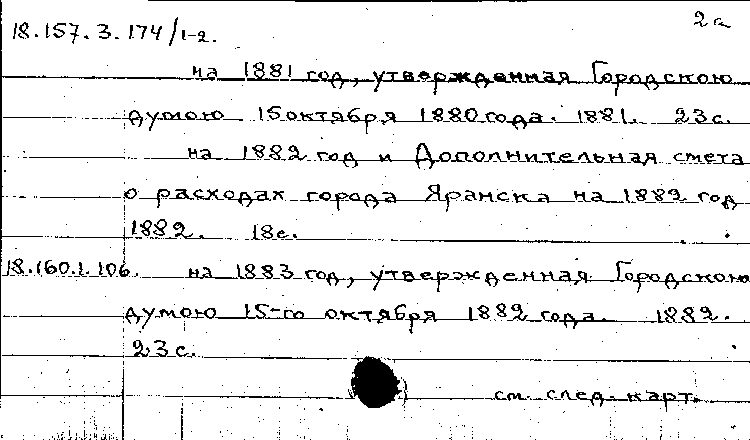 2а
18.157.3.174/1-2.
на 1881 год, утвержденная Городскою
думою 15 октября 1880 года. 1881. 23с.
на 1882 год и Дополнительная смета
о расходах города Яранска на 1882 год
1882. 18с.
18.160.1.106. на 1883 год, утвержденная Городскою
думою 15-го октября 1882 года. 1882.
23с.
см. след. карт.